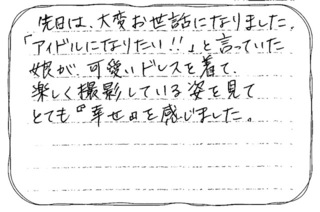 先日は、大変お世話になりました。
「アイドルになりたい!!」と言っていた
娘が、可愛いドレスを着て、
楽しく撮影している姿を見て
とても『幸せ』を感じました。